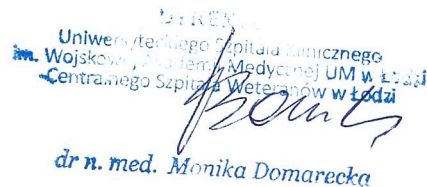 Uniwersyteckiego Szpitala Klinicznego
im. Wojskowej Akademii Medycznej UM w Łodzi
Centralnego Szpitala Weteranów w Łodzi
dr n. med. Monika Domarecka